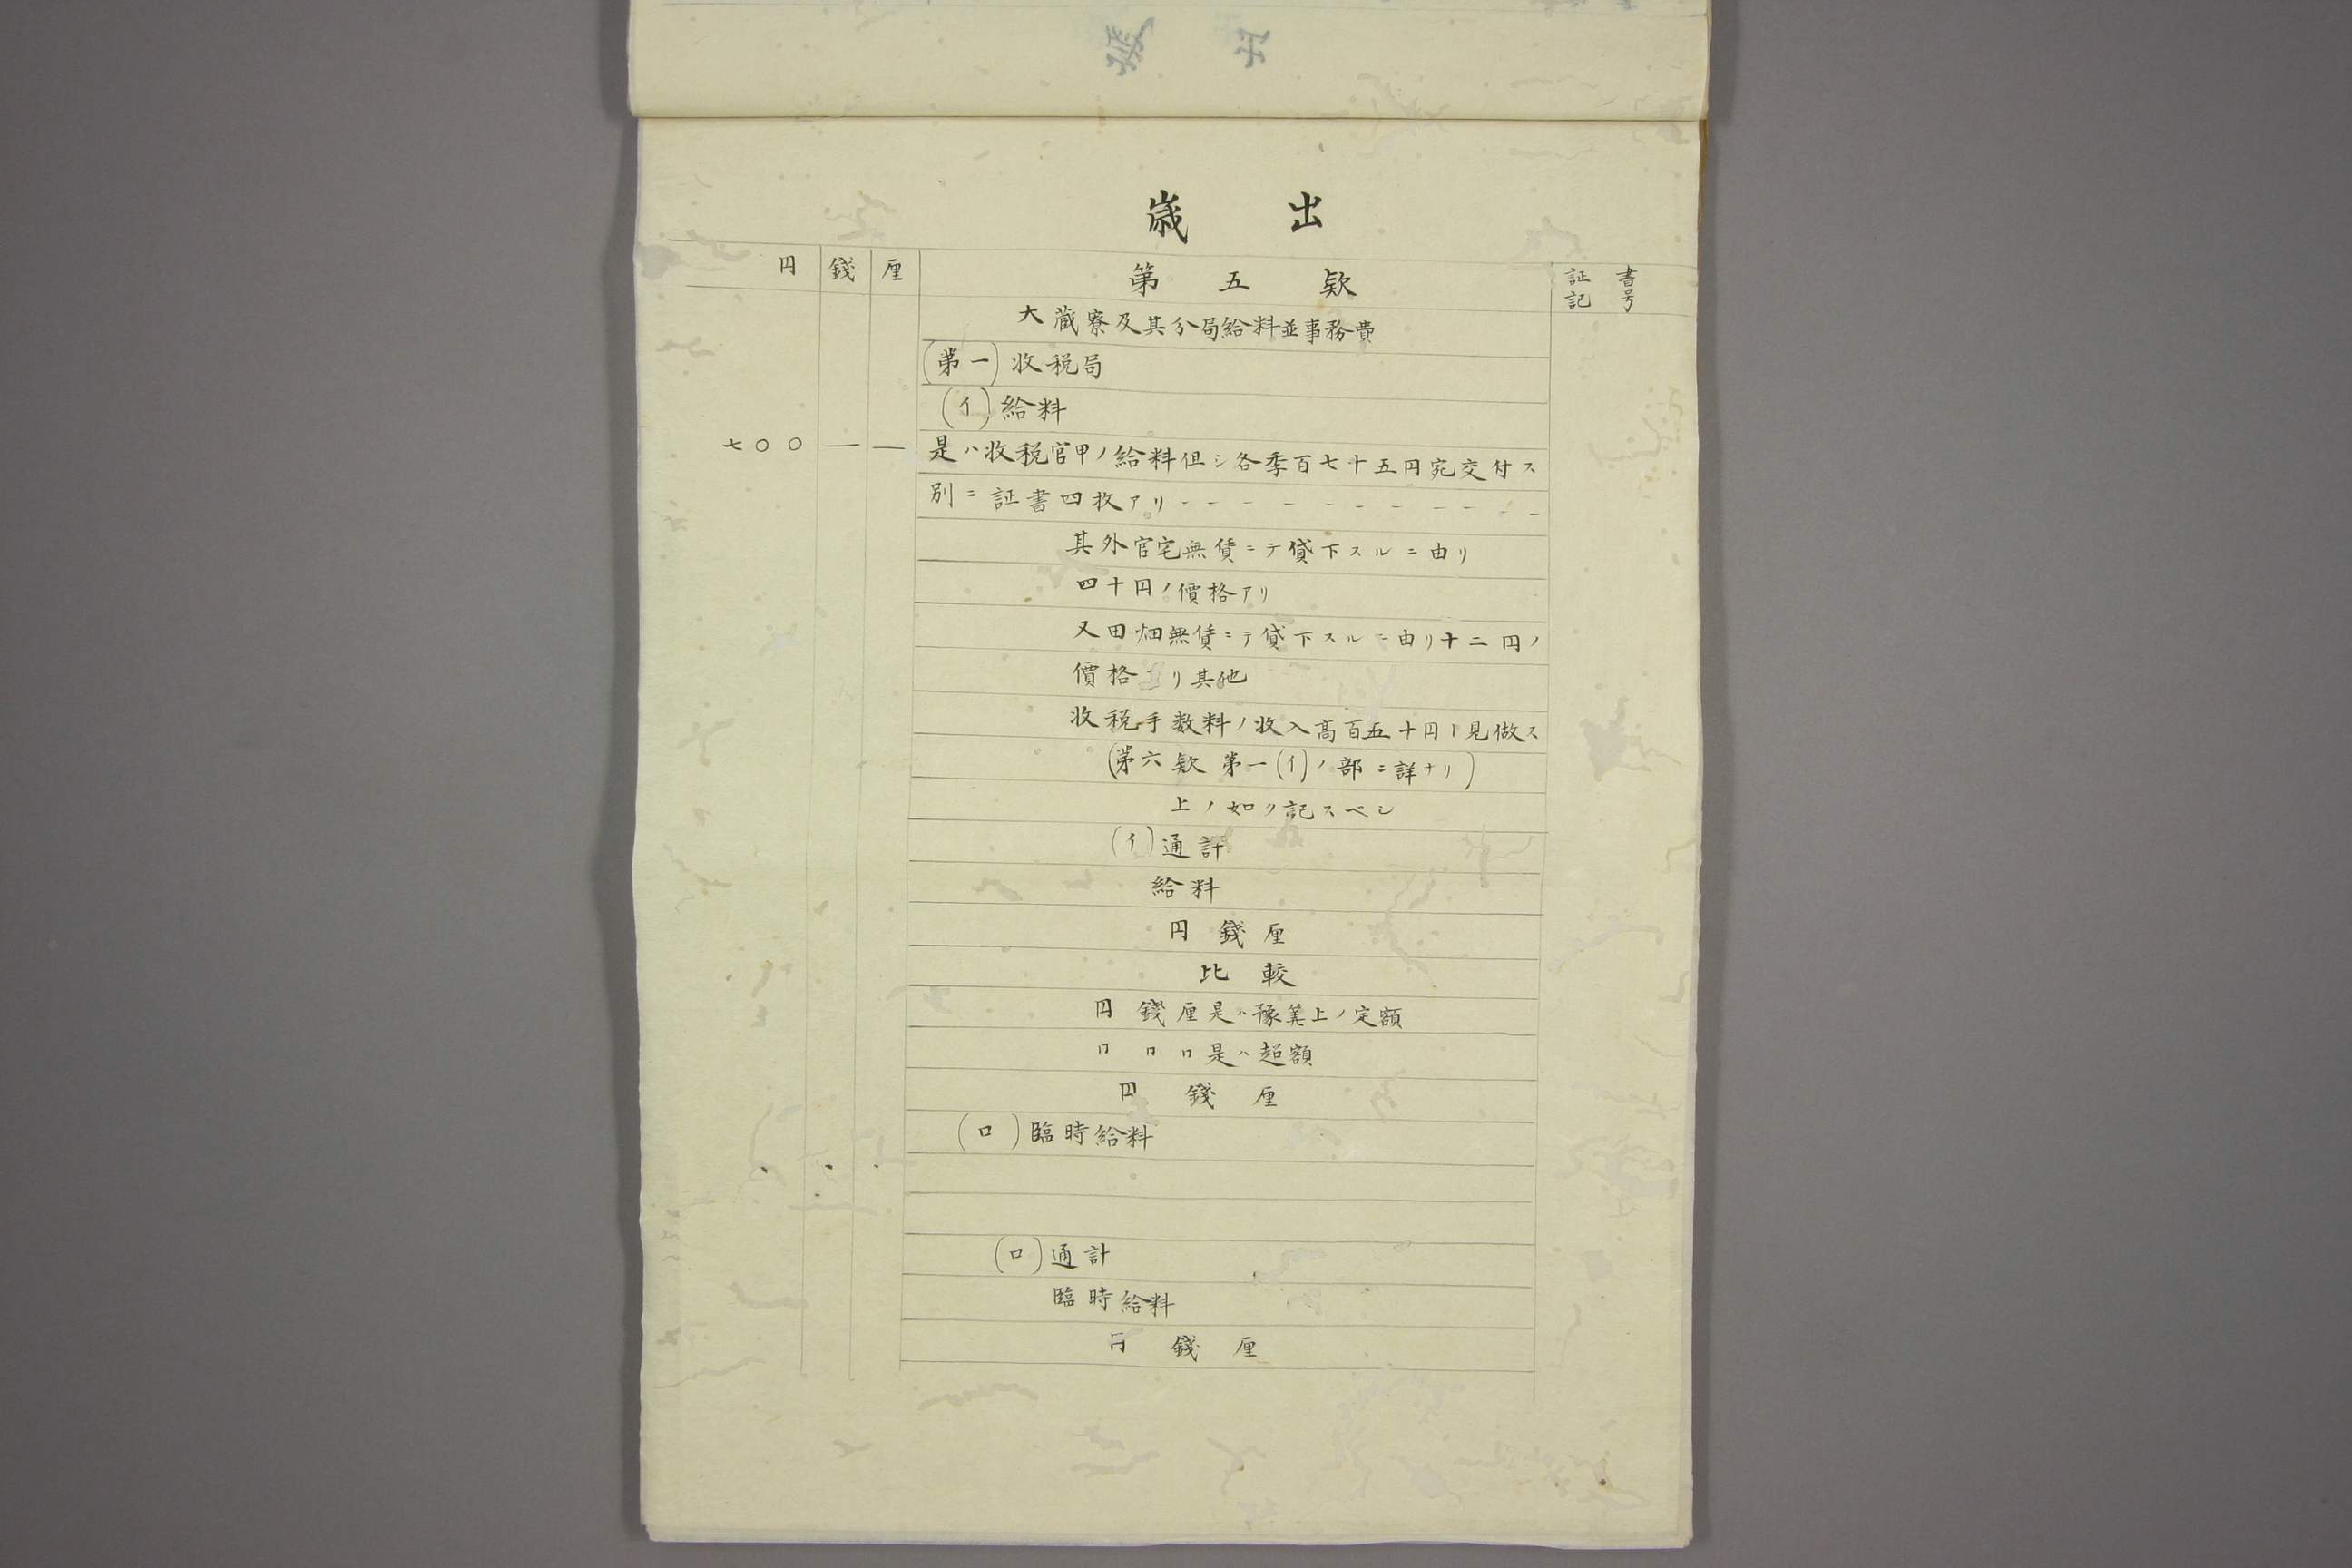 歳出
円 錢 厘 第五欵 証書
記号
大藏寮及其分局給料並事務費
(第一)收税局
(イ)給料
七〇〇 — — 是ハ收税官甲ノ給料但シ各季百七十五円宛交付ス
別ニ証書四枚アリ
其外官宅無賃ニテ貸下スルニ由リ
四十円ノ價格アリ
又田畑無賃ニテ貸下スルニ由リ十二円ノ
價格アリ其他
收税手数料ノ收入高百五十円ト見做ス
(第六欵 第一(イ)ノ部ニ詳ナリ)
上ノ如ク記スベシ
(イ)通計
給料
円 錢 厘
比較
円 錢 厘是ハ豫筭上ノ定額
〃 〃 〃是ハ超額
円 錢 厘
(ロ)臨時給料
(ロ)通計
臨時給料
円 錢 厘